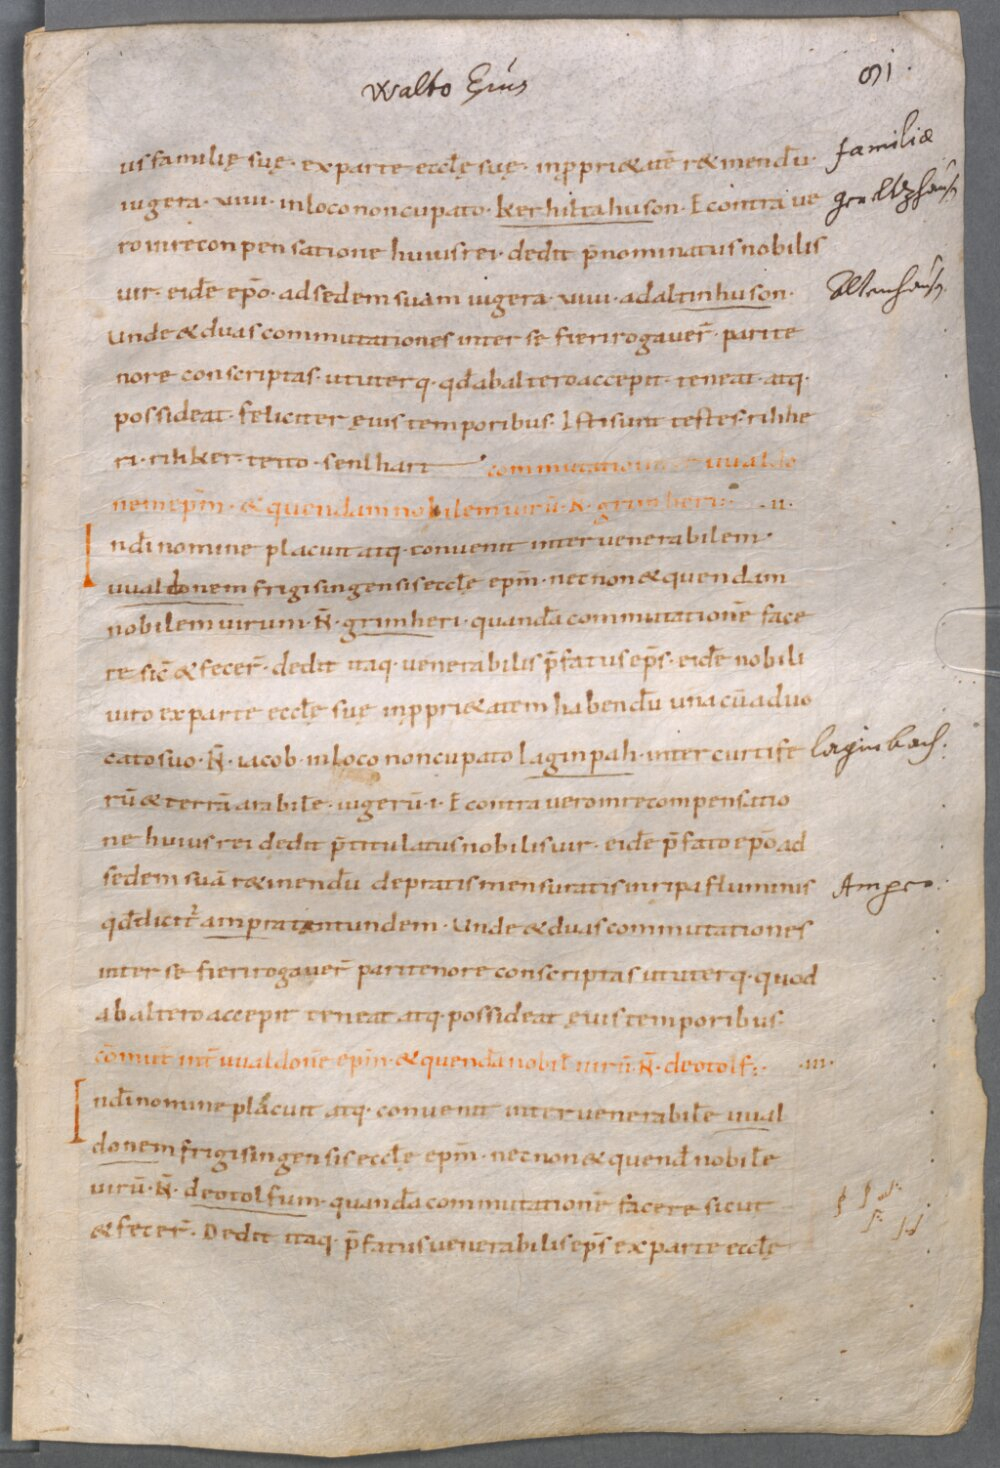 Walto Epus
91.
us familię suę · ex parte eccłę suę · in ppri&atē r&inendū·
iugera · viiii · in loco noncupato · kerhiltahuson · E contra ve
ro in reconpensatione huius rei · dedit p̄nominatus nobilis
uir · eidē epō · ad sedem suam iugera · viiii · ad altinhuson ·
Unde & duas commutationes inter se fieri rogauer̄ · pari te
nore conscriptas · ut uterq · qđ ab altero accepit · teneat · atq ·
possideat · feliciter ęuis temporibus · Isti sunt testes · rihhe
ri · rihker · teito · senlhart commutatio uualdo
nem epm̄ · & quendam nobilem uirū · N̄ · grimheri · · ii ·
In dī nomine placuit atq · convenit inter venerabilem ·
uualdonem frigisingensis eccłę epm̄ · nec non & quendam
nobilem uirum · N̄ · grimheri · quandā commutationē face
re sič & fecer̄ · dedit itaq · venerabilis p̄fatus eps̄ · eidē nobili
uiro ex parte eccłę suę in ppri&atem habendū una cū aduo
cato suo · N̄ · iacob · in loco noncupato laginpah · inter curtife
rū & terrā arabilē · iugerū · i · E contra vero in recompensatio
ne huius rei dedit p̄titulatus nobilis uir · eidē p̄fato epō ad
sedem suā r&inendū de pratis mensuratis in ripa fluminis
qđ dicit̄ ampra tantundem · Unde & duas commutationes
inter se fieri rogauer̄ pari tenore conscriptas ut uterq · quod
ab altero accepit teneat atq · possideat ęuis temporibus ·
cōmut int̄ uualdonē epm̄ · & quendā nobił uirū · N̄ · deotolf : · · iii ·
In dī nomine placuit atq · convenit inter venerabilē uual
donem frigisingensis eccłę epm̄ · nec non & quend̄ nobilē
uirū · N̄ · deotolfum · quandā commutationē facere sicut
& fecer̄ · Dedit itaq · p̄fatus venerabilis eps̄ ex parte eccłę
familiæ
Altenhausn
laginbach.
Amper.